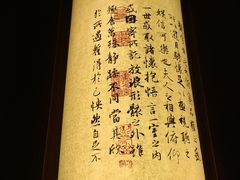 所以遊目騁懷足以極視聽之
娛信可樂也夫人之相與俯仰
一世或取諸懷抱悟言一室之內
或因寄所託放浪形骸之外雖
趣舍萬殊靜躁不同當其欣
於所遇暫得於己快然自足不